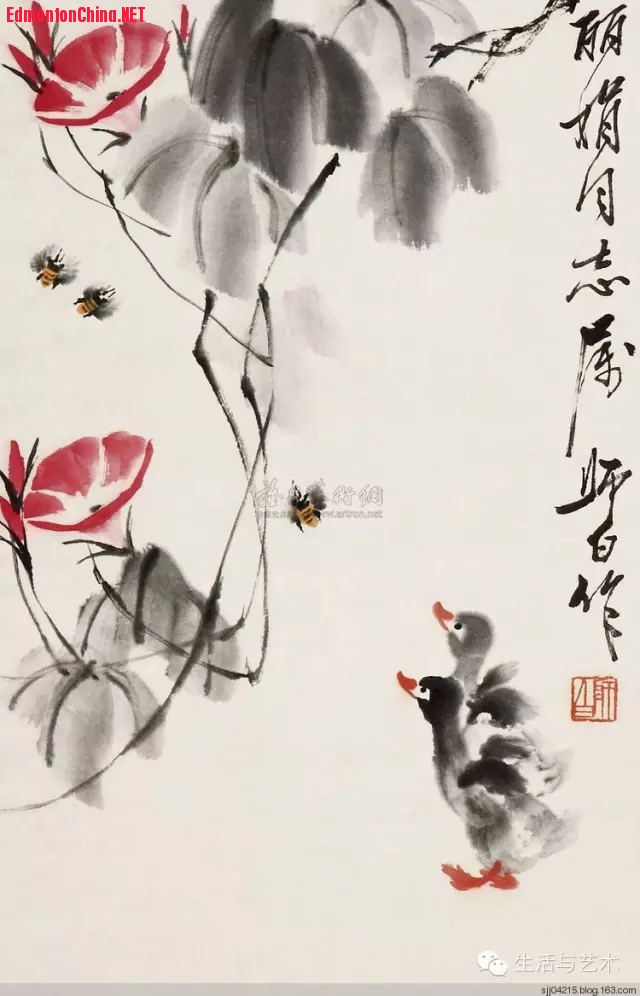 EdmontonChina.NET
丽娟同志属 师白作
藝術網
www.artron.net
生活与艺术
sjj04215.blog.163.com